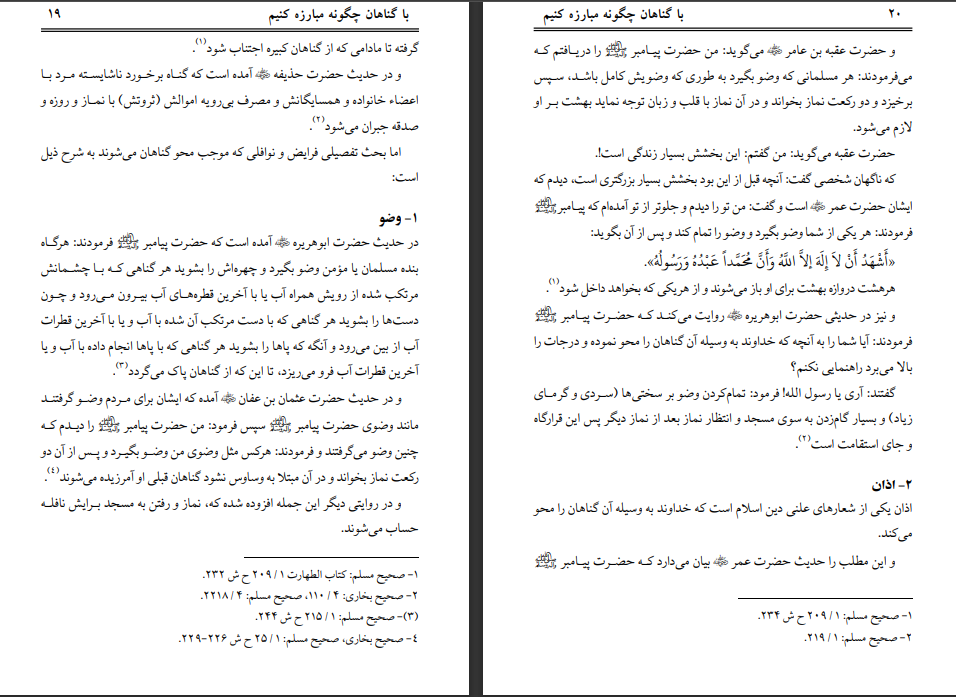 با گناهان چگونه مبارزه کنیم ۱۹
گرفته تا مادامی که از گناهان کبیره اجتناب شود(۱).
و در حدیث حضرت حذیفه آمده است که گناه برخورد ناشایسته مرد با
اعضاء خانواده و همسایگانش و مصرف بی‌رویه اموالش (ثروتش) با نماز و روزه و
صدقه جبران می‌شود(۲).
اما بحث تفصیلی فرایض و نوافلی که موجب محو گناهان می‌شوند به شرح ذیل
است:
۱- وضو
در حدیث حضرت ابوهریره آمده است که حضرت پیامبر ﷺ فرمودند: هرگاه
بنده مسلمان یا مؤمن وضو بگیرد و چهره‌اش را بشوید هر گناهی که با چشمانش
مرتکب شده از رویش همراه آب یا با آخرین قطره‌های آب بیرون می‌رود و چون
دست‌ها را بشوید هر گناهی که با دست مرتکب آن شده با آب و یا با آخرین قطرات
آب از بین می‌رود و آنگه که پاها را بشوید هر گناهی که با پاها انجام داده با آب و یا
آخرین قطرات آب فرو می‌ریزد، تا این که از گناهان پاک می‌گردد(۳).
و در حدیث حضرت عثمان بن عفان آمده که ایشان برای مردم وضو گرفتند
مانند وضوی حضرت پیامبر ﷺ سپس فرمود: من حضرت پیامبر ﷺ را دیدم که
چنین وضو می‌گرفتند و فرمودند: هرکس مثل وضوی من وضو بگیرد و پس از آن دو
رکعت نماز بخواند و در آن مبتلا به وساوس نشود گناهان قبلی او آمرزیده می‌شوند(٤).
و در روایتی دیگر این جمله افزوده شده که، نماز و رفتن به مسجد برایش نافله
حساب می‌شوند.
۱- صحیح مسلم: کتاب الطهارت ۱ / ۲۰۹ ح ش ۲۳۲.
۲- صحیح بخاری: ۴ / ۱۱۰، صحیح مسلم: ۴ / ۲۲۱۸.
(۳)- صحیح مسلم: ۱ / ۲۱۵ ح ش ۲۴۴.
٤- صحیح بخاری، صحیح مسلم: ۱ / ۲۵ ح ش ۲۲۶-۲۲۹.
۲۰ با گناهان چگونه مبارزه کنیم
و حضرت عقبه بن عامر می‌گوید: من حضرت پیامبر ﷺ را دریافتم که
می‌فرمودند: هر مسلمانی که وضو بگیرد به طوری که وضویش کامل باشد، سپس
برخیزد و دو رکعت نماز بخواند و در آن نماز با قلب و زبان توجه نماید بهشت بر او
لازم می‌شود.
حضرت عقبه می‌گوید: من گفتم: این بخشش بسیار زندگی است!.
که ناگهان شخصی گفت: آنچه قبل از این بود بخشش بسیار بزرگتری است، دیدم که
ایشان حضرت عمر است و گفت: من تو را دیدم و جلوتر از تو آمده‌ام که پیامبر ﷺ
فرمودند: هر یکی از شما وضو بگیرد و وضو را تمام کند و پس از آن بگوید:
«أَشْهَدُ أَنْ لاَ إِلَهَ إلاَّ اللَّهُ وَأَنَّ مُحَمَّداً عَبْدُهُ وَرَسُولُهُ».
هرهشت دروازه بهشت برای او باز می‌شوند و از هریکی که بخواهد داخل شود(۱).
و نیز در حدیثی حضرت ابوهریره روایت می‌کند که حضرت پیامبر ﷺ
فرمودند: آیا شما را به آنچه که خداوند به وسیله آن گناهان را محو نموده و درجات را
بالا می‌برد راهنمایی نکنم؟
گفتند: آری یا رسول الله! فرمود: تمام‌کردن وضو بر سختی‌ها (سردی و گرمای
زیاد) و بسیار گام‌زدن به سوی مسجد و انتظار نماز بعد از نماز دیگر پس این قرارگاه
و جای استقامت است(۲).
۲- اذان
اذان یکی از شعارهای علنی دین اسلام است که خداوند به وسیله آن گناهان را محو
می‌کند.
و این مطلب را حدیث حضرت عمر بیان می‌دارد که حضرت پیامبر ﷺ
۱- صحیح مسلم: ۱ / ۲۰۹ ح ش ۲۳۴.
۲- صحیح مسلم: ۱ / ۲۱۹.